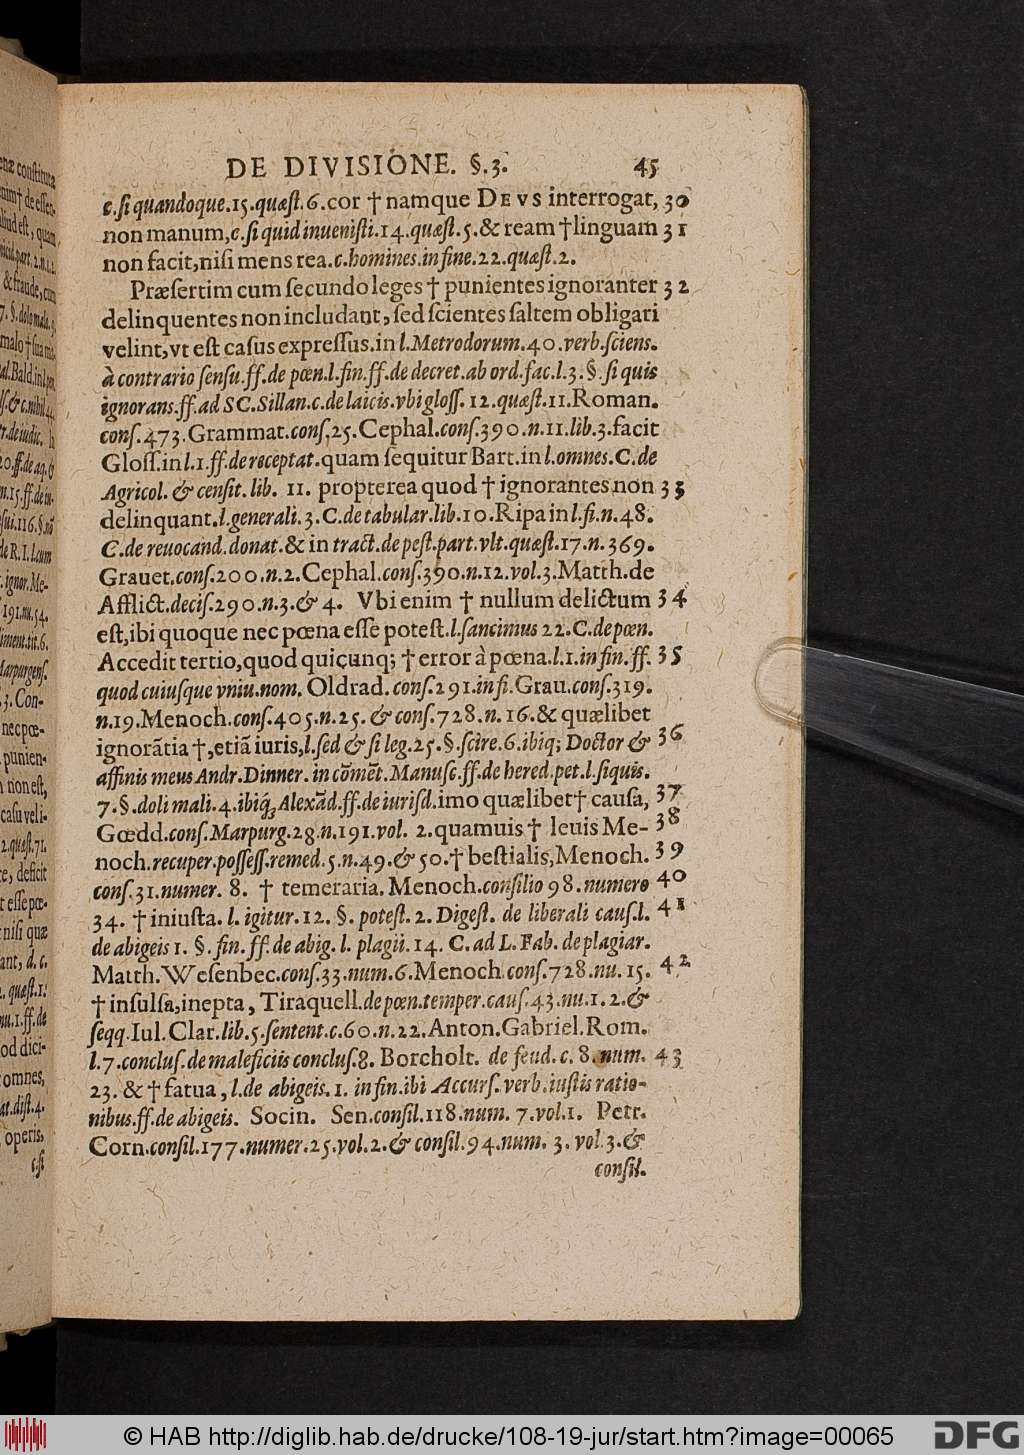 DE DIVISIONE. §.3. 45
c.ſi quandoque.15.quæſt.6.cor † namque DEVS interrogat, 30
non manum,c.ſi quid inueniſti.14.quæſt.5.& ream †linguam 31
non facit,niſi mens rea.c.homines.in fine.22.quæſt.2.
Præſertim cum ſecundo leges † punientes ignoranter 32
delinquentes non includant, ſed ſcientes ſaltem obligari
velint,vt eſt caſus expreſſus.in l.Metrodorum.40.verb.ſciens.
à contrario ſenſu.ff.de pœn.l.fin.ff.de decret.ab ord.fac.l.3.§.ſi quis
ignorans.ff.ad SC.Sillan.c.de laicis.vbi gloſſ.12.quæſt.11.Roman.
conſ.473.Grammat.conſ.25.Cephal.conſ.390.n.11.lib.3.facit
Gloſſ.in l.1.ff.de receptat.quam ſequitur Bart.in l.omnes.C.de
Agricol. & cenſit. lib. 11. propterea quod † ignorantes non 33
delinquant.l.generali.3.C.de tabular.lib.10.Ripa in l.fi.n.48.
C.de reuocand.donat.& in tract.de peſt.part.vlt.quæſt.17.n.369.
Grauet.conſ.200.n.2.Cephal.conſ.390.n.12.vol.3.Matth.de
Afflict.deciſ.290.n.3.& 4. Vbi enim † nullum delictum 34
eſt,ibi quoque nec pœna eſſe poteſt.l.ſancimus 22.C.de pœn.
Accedit tertio,quod quicunq; † error à pœna.l.1.in fin.ff. 35
quod cuiuſque vniu.nom. Oldrad.conſ.291.in fi.Grau.conſ.319.
n.19.Menoch.conſ.405.n.25.& conſ.728.n.16.& quælibet
ignorãtia †,etiã iuris,l.ſed & ſi leg.25.§.ſcire.6.ibiq; Doctor & 36
affinis meus Andr.Dinner. in cõmẽt.Manuſc.ff.de hered.pet.l.ſiquis.
7.§.doli mali.4.ibiq́; Alexãd.ff.de iuriſd.imo quælibet† cauſa, 37
Gœdd.conſ.Marpurg.28.n.191.vol. 2.quamuis † leuis Me- 38
noch.recuper.poſſeſſ.remed.5.n.49.& 50.† beſtialis,Menoch. 39
conſ.31.numer. 8. † temeraria. Menoch.conſilio 98.numero 40
34. † iniuſta. l. igitur.12. §. poteſt. 2. Digeſt. de liberali cauſ.l. 41
de abigeis 1. §. fin. ff. de abig. l. plagii. 14. C. ad L. Fab. de plagiar.
Matth.Weſenbec.conſ.33.num.6.Menoch.conſ.728.nu. 15. 42
† inſulſa,inepta, Tiraquell.de pœn.temper.cauſ.43.nu.1.2.&
ſeqq.Iul.Clar.lib.5.ſentent.c.60.n.22.Anton.Gabriel.Rom.
l.7.concluſ.de maleficiis concluſ.8. Borcholt. de feud. c. 8. num. 43
23. & † fatua, l.de abigeis. 1. in fin.ibi Accurſ. verb.iuſtis ratio-
nibus.ff.de abigeis. Socin. Sen.conſil.118.num. 7.vol.1. Petr.
Corn.conſil.177.numer.25.vol.2.& conſil.94.num. 3. vol.3.&
conſil.
© HAB http://diglib.hab.de/drucke/108-19-jur/start.htm?image=00065
DFG